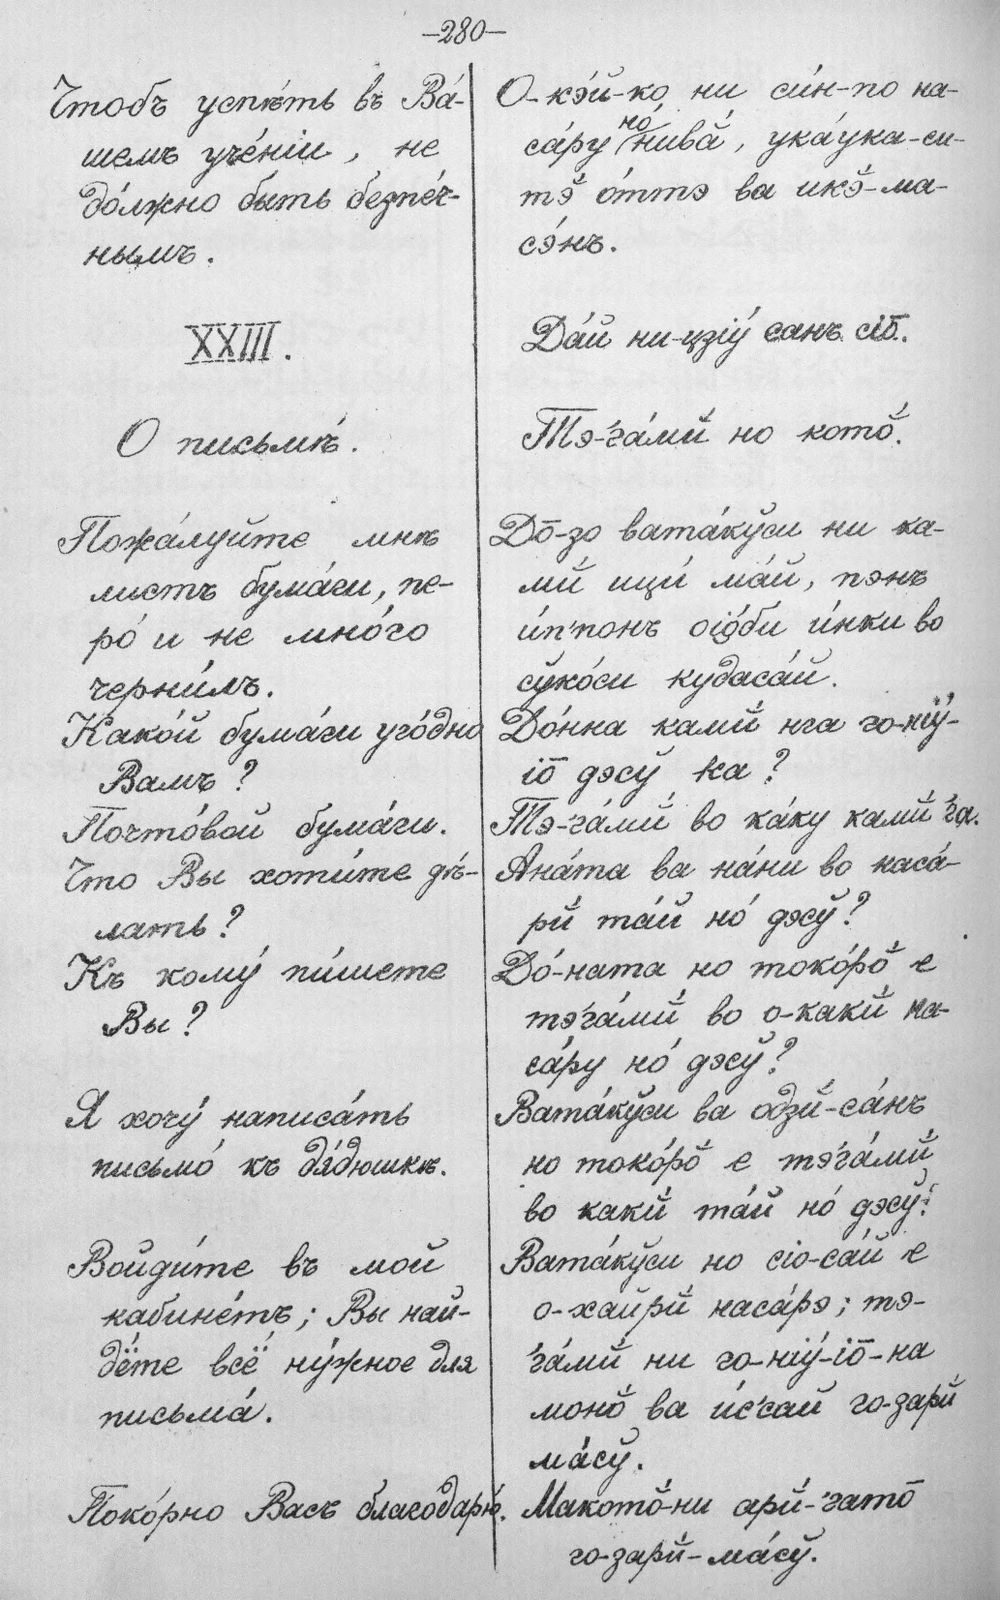 —280—
Чтобъ успѣть въ Ва́-
шемъ уче́нiи, не
до́лжно быть безпе́ч-
нымъ.
XXIII.
О письмѣ́.
Пожа́луйте мнѣ
листъ бума́ги, пе-
ро́ и не мно́го
черни́лъ.
Како́й бума́ги уго́дно
Вамъ?
Почто́вой бума́ги.
Что Вы хоти́те дѣ́-
лать?
Къ кому́ пи́шете
Вы?
Я хочу́ написа́ть
письмо́ къ дя́дюшкѣ.
Войди́те въ мой
кабине́тъ; Вы най-
дёте всё ну́жное для
письма́.
Поко́рно Васъ благодарю́.
О-кэ́й-ко ни си́н-по на-
са́ру но́ нивӑ́, ука́ука-си-
тэ̆́ о́ттэ ва икэ̆́-ма-
сэ́нъ.
Да́й ни-цзiу́ санъ сiо̄.
Тэ-га́мй но кото̆́.
До̄-зо вата́кӯси ни ка-
мй ици́ ма́й, пэнъ
и́п'понъ оiо́би и́нки во
сўко́си кудаса́й.
До́нна камй нга го-нiў́-
iо̄ дэсў ка?
Тэ-га́мй во ка́ку камй га.
Ана́та ва на́ни во наса́-
рй та́й но́ дэсў?
До́-ната но токо́ро̆ е
тэга́мй во о-какй на-
са́ру но́ дэсў?
Вата́кўси ва одзй-са́нъ
но токо́ро̆ е тэга́мй
во какй та́й но́ дэсў.
Вата́кўси но сiо-са́й е
о-хайрй наса́рэ; тэ-
га́мй ни го-нiу́-iо̄-на
моно̆ ва и́с'сай го-зарй
ма́сў.
Макото̆-ни арй-гато̄
го-зарй-ма́сў.